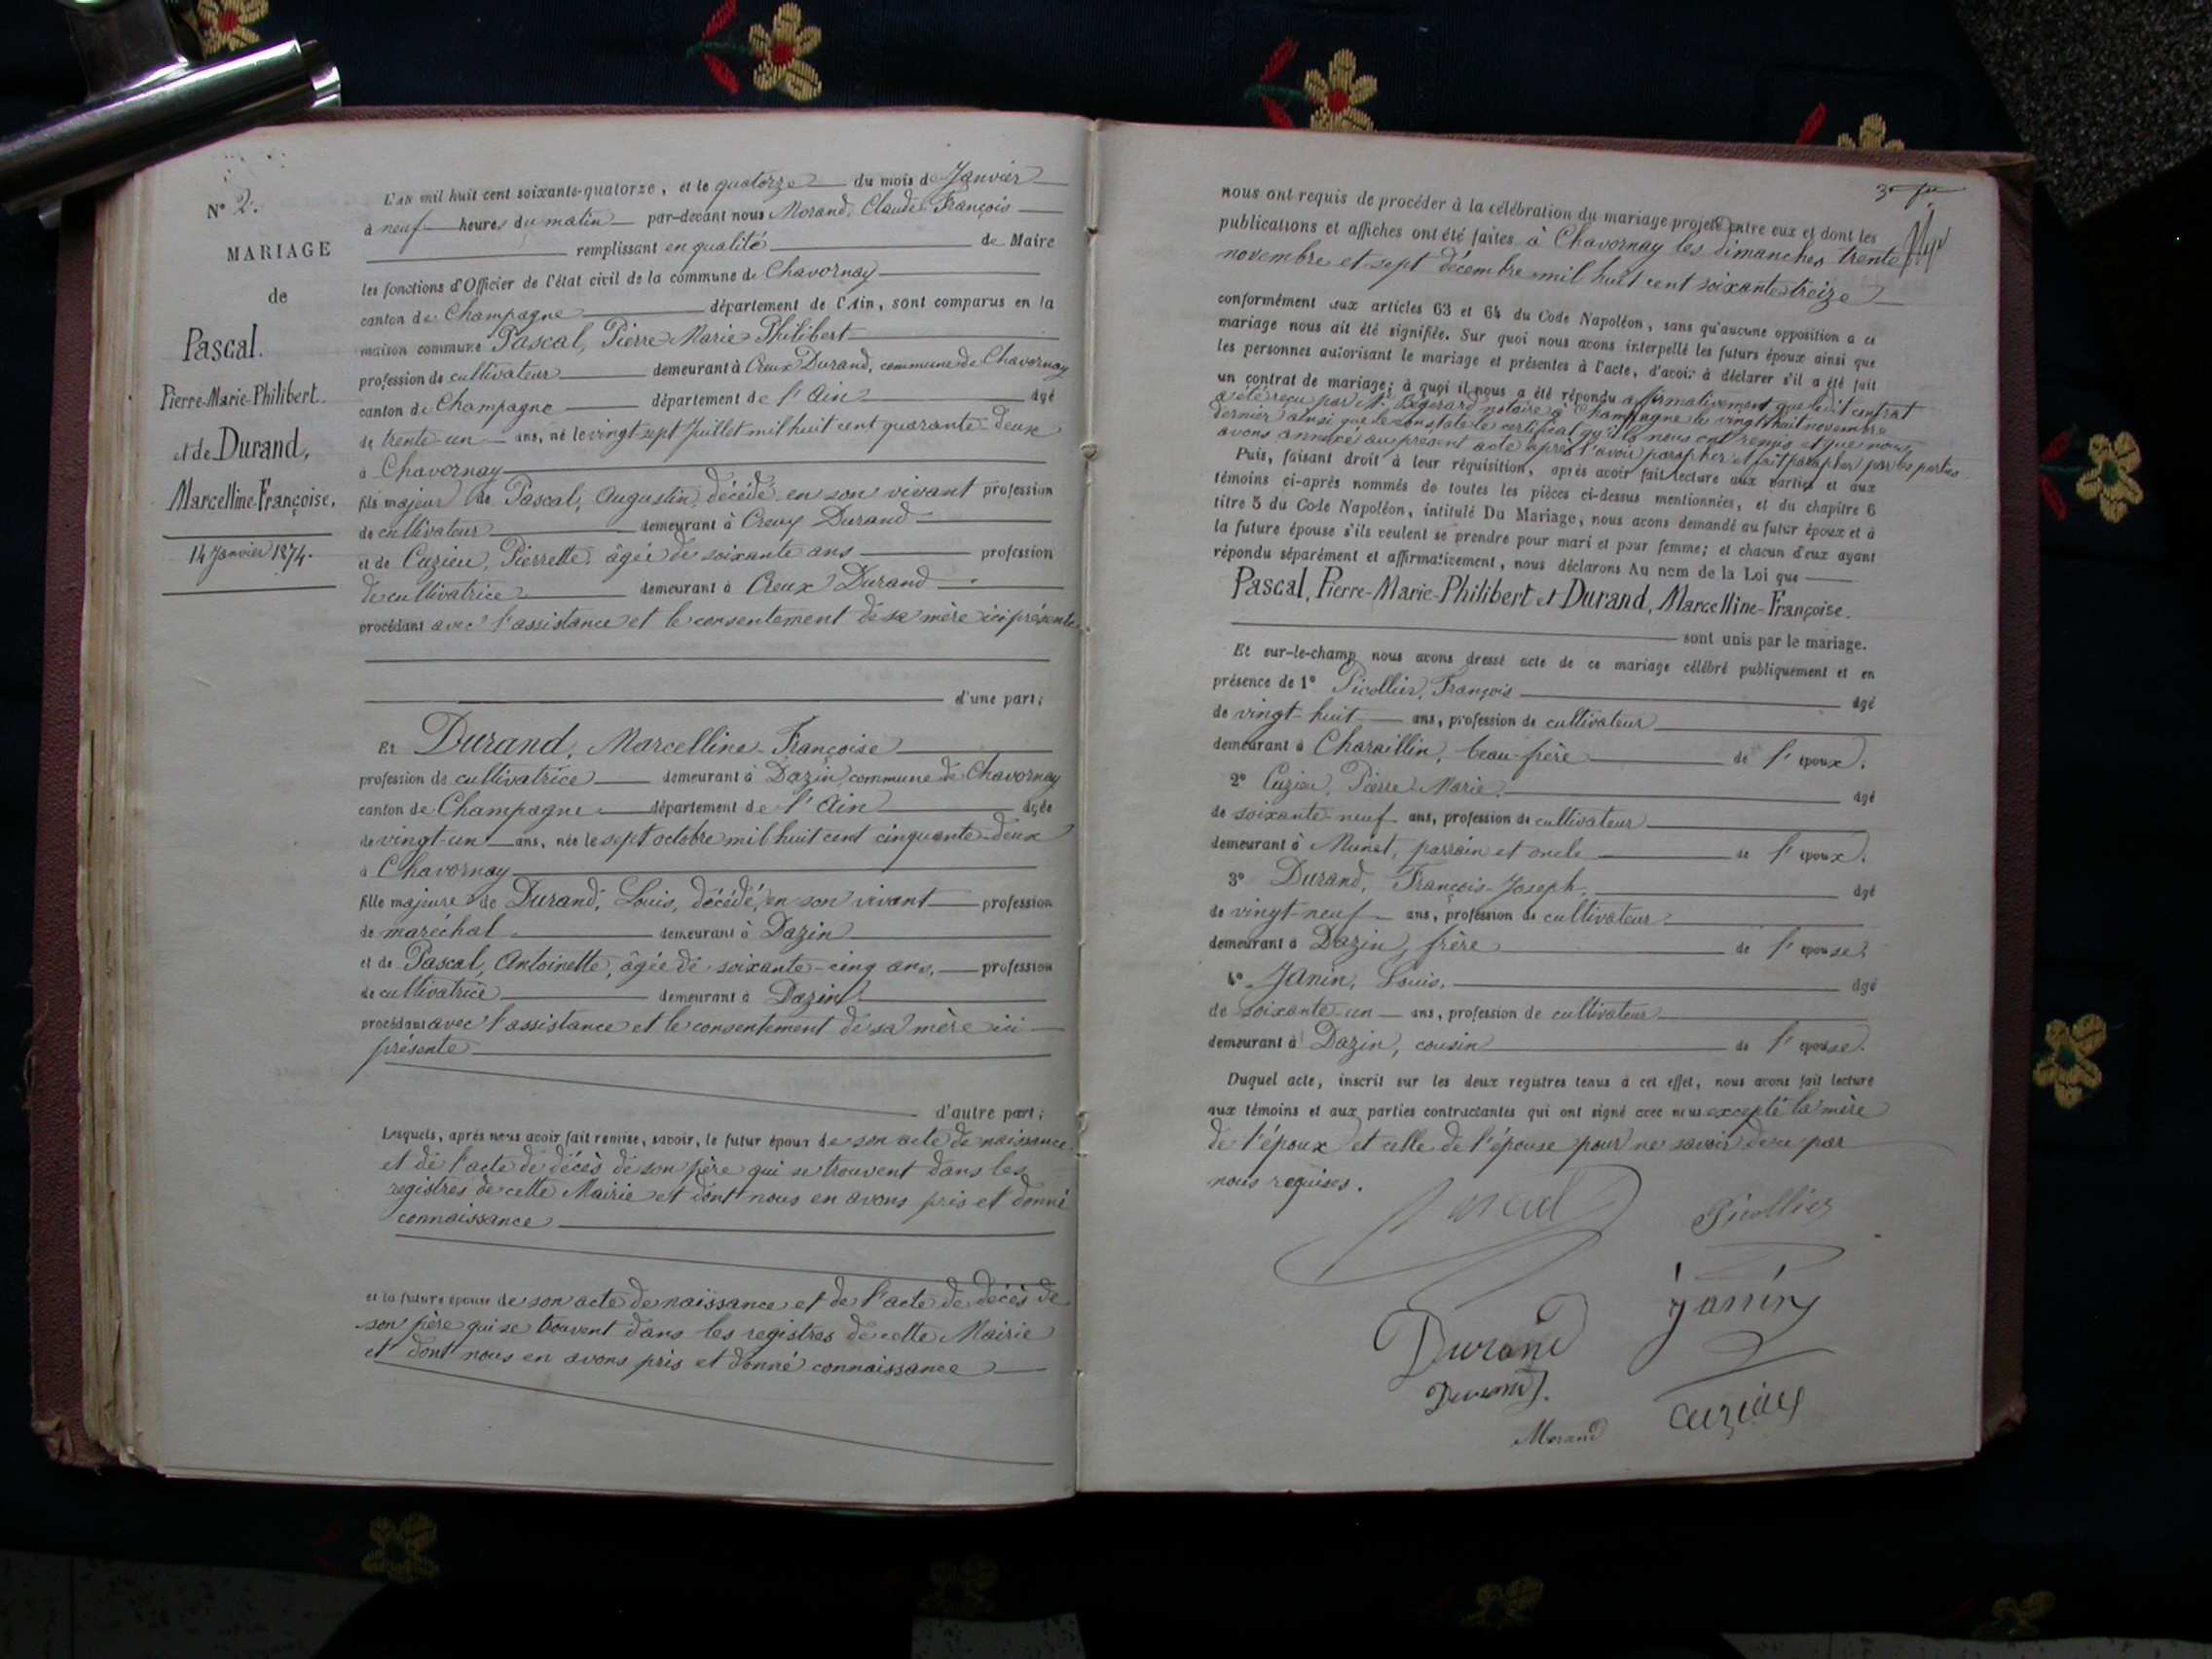 N° 2.
MARIAGE
de
Pascal.
Pierre-Marie-Philibert.
et de Durand,
Marcelline-Françoise.
14 Janvier 1874.
L'AN mil huit cent soixante-quatorze, et le quatorze du mois de Janvier
à neuf heures du matin par-devant nous Morand, Claude François
remplissant en qualité de Maire
les fonctions d'Officier de l'état civil de la commune de Chavornay
canton de Champagne département de l'Ain, sont comparus en la
maison commune Pascal, Pierre Marie Philibert
profession de cultivateur demeurant à Creux Durand, commune de Chavornay
canton de Champagne département de l'Ain âgé
de trente-un ans, né le vingt sept Juillet mil huit cent quarante-deux
à Chavornay
fils majeur de Pascal, Augustin, décédé en son vivant profession
de cultivateur demeurant à Creux Durand
et de Cuzieu, Pierrette âgée de soixante ans profession
de cultivatrice demeurant à Creux Durand
procédant avec l'assistance et le consentement de sa mère ici présente
d'une part;
Et Durand, Marcelline-Françoise
profession de cultivatrice demeurant à Dazin, commune de Chavornay
canton de Champagne département de l'Ain âgée
de vingt-un ans, née le sept octobre mil huit cent cinquante-deux
à Chavornay
fille majeure de Durand, Louis, décédé, en son vivant profession
de maréchal demeurant à Dazin
et de Pascal, Antoinette, âgée de soixante-cinq ans, profession
de cultivatrice demeurant à Dazin
procédant avec l'assistance et le consentement de sa mère ici
présente
d'autre part;
Lesquels, après nous avoir fait remise, savoir, le futur époux de son acte de naissance
et de l'acte de décès de son père qui se trouvent dans les
registres de cette Mairie et dont nous en avons pris et donné
connaissance
et la future épouse de son acte de naissance et de l'acte de décès de
son père qui se trouvent dans les registres de cette Mairie
et dont nous en avons pris et donné connaissance
nous ont requis de procéder à la célébration du mariage projeté entre eux et dont les
publications et affiches ont été faites à Chavornay les dimanches trente
novembre et sept décembre mil huit cent soixante-treize
conformément aux articles 63 et 64 du Code Napoléon, sans qu'aucune opposition a ce
mariage nous ait été signifiée. Sur quoi nous avons interpellé les futurs époux ainsi que
les personnes autorisant le mariage et présentes à l'acte, d'avoir à déclarer s'il a été fait
un contrat de mariage; à quoi il nous a été répondu affirmativement que ledit contrat
a été reçu par notaire à Champagne le vingt huit novembre
dernier ainsi que le constate le certificat qu'ils nous ont remis et que nous
avons annexé au présent acte après l'avoir parapher et fait parapher par les parties
Puis, faisant droit à leur réquisition, après avoir fait lecture aux parties et aux
témoins ci-après nommés de toutes les pièces ci-dessus mentionnées, et du chapitre 6
titre 5 du Code Napoléon, intitulé Du Mariage, nous avons demandé au futur époux et à
la future épouse s'ils veulent se prendre pour mari et pour femme; et chacun d'eux ayant
répondu séparément et affirmativement, nous déclarons Au nom de la Loi que
Pascal, Pierre-Marie-Philibert et Durand, Marcelline-Françoise.
sont unis par le mariage.
Et sur-le-champ nous avons dressé acte de ce mariage célébré publiquement et en
présence de 1° Picollier, François âgé
de vingt-huit ans, profession de cultivateur
demeurant à Charaillin, beau-frère de l'époux.
2° Cuzieu, Pierre Marie. âgé
de soixante-neuf ans, profession de cultivateur
demeurant à Munet, parrain et oncle de l'époux.
3° Durand, François-Joseph. âgé
de vingt-neuf ans, profession de cultivateur
demeurant à Dazin, frère de l'épouse
4° Janin, Louis. âgé
de soixante-un ans, profession de cultivateur
demeurant à Dazin, cousin de l'épouse.
Duquel acte, inscrit sur les deux registres tenus à cet effet, nous avons fait lecture
aux témoins et aux parties contractantes qui ont signé avec nous excepté la mère
de l'époux et celle de l'épouse pour ne savoir de ce par
nous requises.
Picollier
Janin
Durand
Durand
Cuzieu
Morand